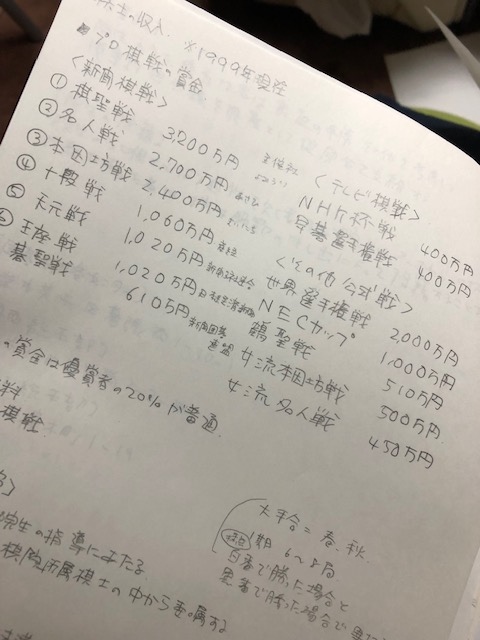 棋士の収入 ※1999年現在
プロ棋戦の賞金
〈新聞棋戦〉
① 棋聖戦 3,200万円 主催社
② 名人戦 2,700万円
③ 本因坊戦 2,400万円
④ 十段戦 1,060万円
⑤ 天元戦 1,020万円
⑥ 王座戦 1,020万円 日本経済新聞
碁聖戦 610万円 新聞囲碁連盟
〈テレビ棋戦〉
NHK杯戦 400万円
早碁選手権戦 400万円
〈その他公式戦〉
世界選手権戦 2,000万円
NECカップ 1,000万円
鶴聖戦 510万円
女流本因坊戦 500万円
女流名人戦 450万円
の賞金は優賞者の20%が普通
料
棋戦
院生の指導にあたる
棋院所属棋士の中から委嘱する
大手合=春、秋
1期 6〜8局
白番で勝った場合と
黒番で勝った場合で